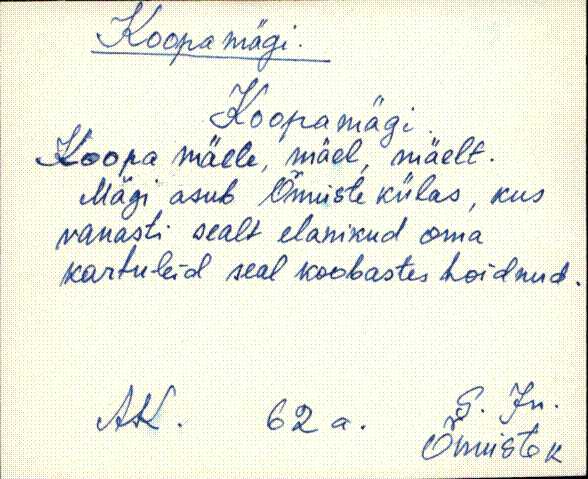 Koopamägi.
Koopamägi.
Koopa mäele, mäel, mäelt.
Mägi asub Õmiste külas, kus
vanasti sealt elanikud oma
kartuleid seal koobastes hoidnud.
AK. 62 a. G. Jn.
Õmiste k